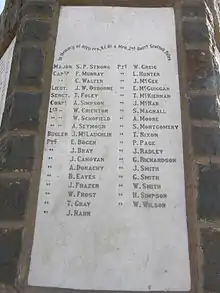 In memory of Officers, N.C.O. & Men, 2nd Battn Scottish Rifles
Major S. P. Strong Pte W. Greig
Captn F. Murray " L. Hunter
" C. Walter " J. McGee
Lieut. J. W. Osborne " E. McGuigan
Sergt. T. Foley " T. McKiernan
Corpl A. Simpson " J. McNab
L/s W. Crichton " S. Maghall
" W. Schofield " A. Moore
" A. Seymour " S. Montgomery
Bugler J. McLauchlin " T. Nixon
Pte E. Bogen " P. Page
" J. Bray " J. Radley
" J. Canovan " G. Richardson
" A. Donachy " J. Smith
" B. Eaves " G. Smith
" J. Frazer " W. Smith
" W. Frost " H. Simpson
" T. Gray " W. Wilson
" J. Hann